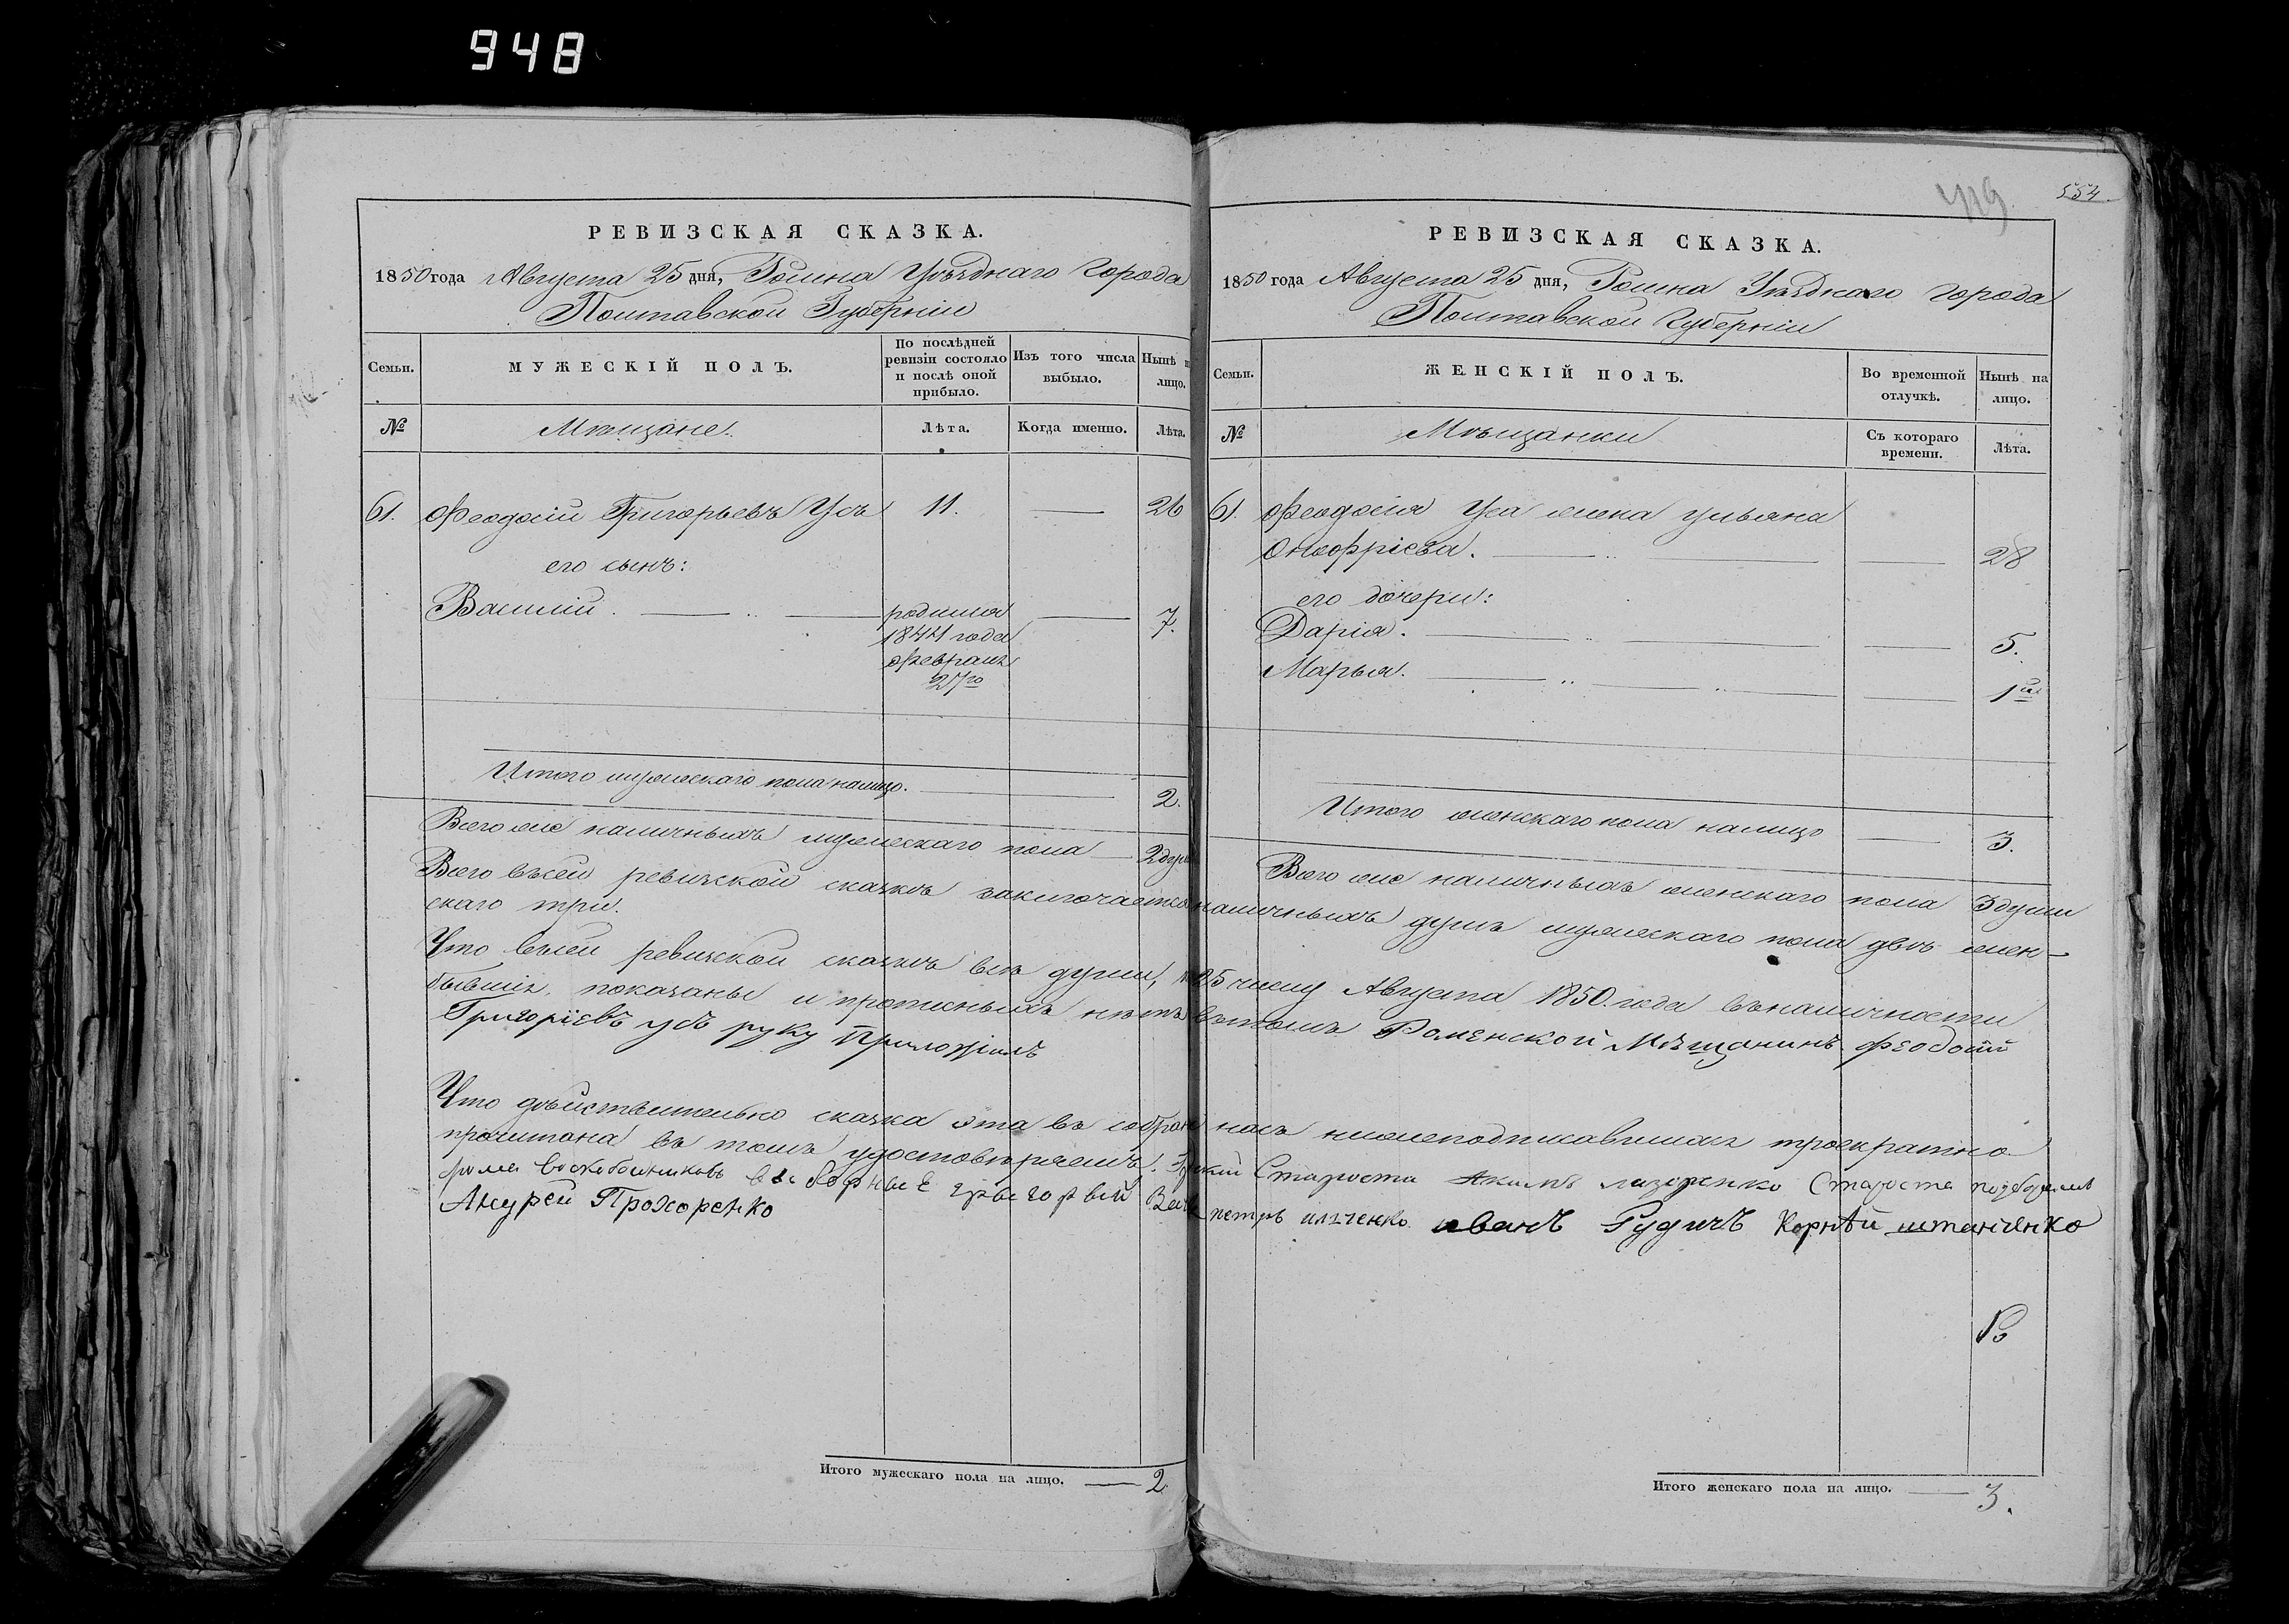 948
РЕВИЗСКАЯ СКАЗКА.
1850 года Августа 25 дня, Ромна Уѣзднаго Города
Полтавской Губерніи
Семьи.
МУЖЕСКІЙ ПОЛЪ.
По послѣдней ревизіи состояло и послѣ оной прибыло.
Изъ того числа выбыло.
Нынѣ на лицо.
№
Мѣщане.
Лѣта.
Когда именно.
Лѣта.
61. Феодосій Григорьевъ Усъ 11. 26
его сынъ:
Василій. родился 7.
1844 года
Февраля
27го
Итого мужескаго пола налицо. 2.
Всего же наличныхъ мужескаго пола 2 души
419
554
РЕВИЗСКАЯ СКАЗКА.
1850 года Августа 25 дня, Ромна Уѣзднаго Города
Полтавской Губерніи
Семьи.
ЖЕНСКІЙ ПОЛЪ.
Во временной отлучкѣ.
Нынѣ на лицо.
№
Мѣщанки
Съ котораго времени.
Лѣта.
61. Феодосія Уса жена Ульяна
Онофріева. 28
его дочери:
Дарія. 5.
Марья. 1
Итого женскаго пола налицо 3.
Всего же наличныхъ женскаго пола 3 души
Всего въсей ревизской сказкѣ заключается наличныхъ душъ мужескаго пола двѣ жен-
скаго три.
Что въсей ревизской сказкѣ всѣ души, к 25 числу Августа 1850. года въналичности
бывшія, показаны и прописныхъ нѣтъ вътомъ Роменской Мѣщанинъ Феодосій
Григоріевъ усъ руку Приложилъ
Что дѣйствительно сказка эта въ собраніи насъ нижеподписавшихся троекратно
прочитана въ томъ удостовѣряемъ. Староста Акимъ лазоренко Староста
фома воскобойниковъ выборные григорѣй петръ ильченко иванъ Рудичъ Корнѣй штанченко
Андрей Прохоренко
Итого мужескаго пола на лицо. 2
Итого женскаго пола на лицо. 3.